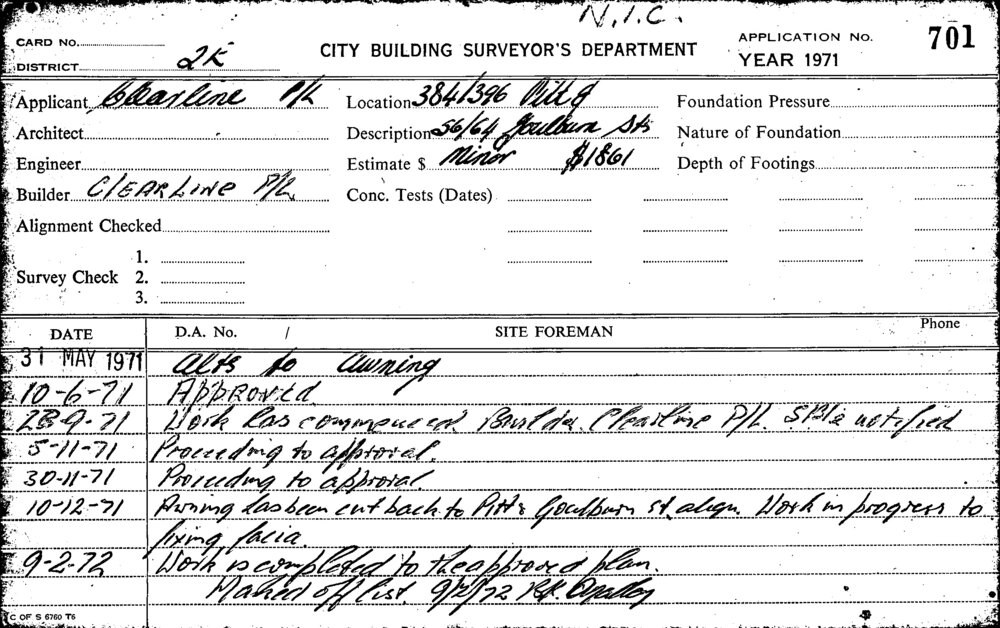 N.I.C.
CARD No. CITY BUILDING SURVEYOR'S DEPARTMENT APPLICATION No. 701
DISTRICT 2E YEAR 1971
Applicant Clearline P/L Location 384/396 Pitt & Foundation Pressure
Architect Description 56/64 Goulburn Sts Nature of Foundation
Engineer Estimate $ Minor $1861 Depth of Footings
Builder CLEARLINE P/L Conc. Tests (Dates)
Alignment Checked
1.
Survey Check 2.
3.
DATE D.A. No. / SITE FOREMAN Phone
31 MAY 1971 Alts to Awning
10-6-71 Approved
28-9-71 Work has commenced. Builder Clearline P/L. notified
5-11-71 Proceeding to approval.
30-11-71 Proceeding to approval
10-12-71 Awning has been cut back to Pitt & Goulburn St. align. Work in progress to
fixing facia.
9-2-72 Work is completed to the approved plan.
Marked off list. 9/2/72
C OF S 6760 T6